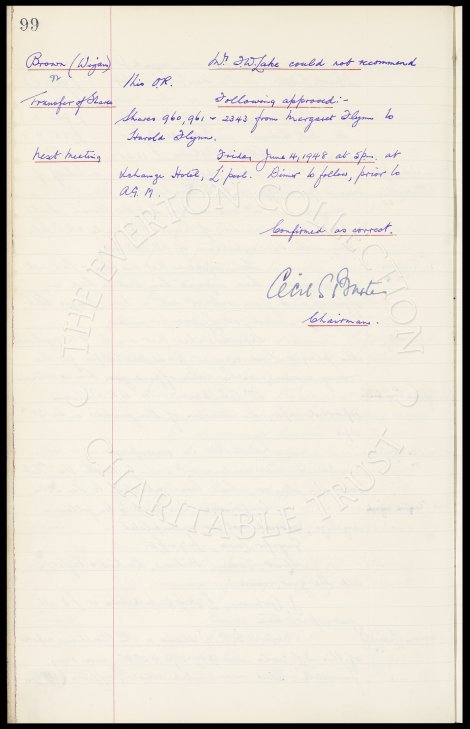 99
Brown (Wigan) Mr. T.W. Lake could not recommend
this O.R.
Transfer of Shares Following approved:-
Shares 960, 961 & 2343 from Margaret Flynn to
Harold Flynn.
Next Meeting Friday June 4, 1948 at 5pm. at
Exchange Hotel, L'pool. Dinner to follow, prior to
A.G.M.
Confirmed as correct.
Cecil S Baxter
Chairman.
THE EVERTON COLLECTION
CHARITABLE TRUST